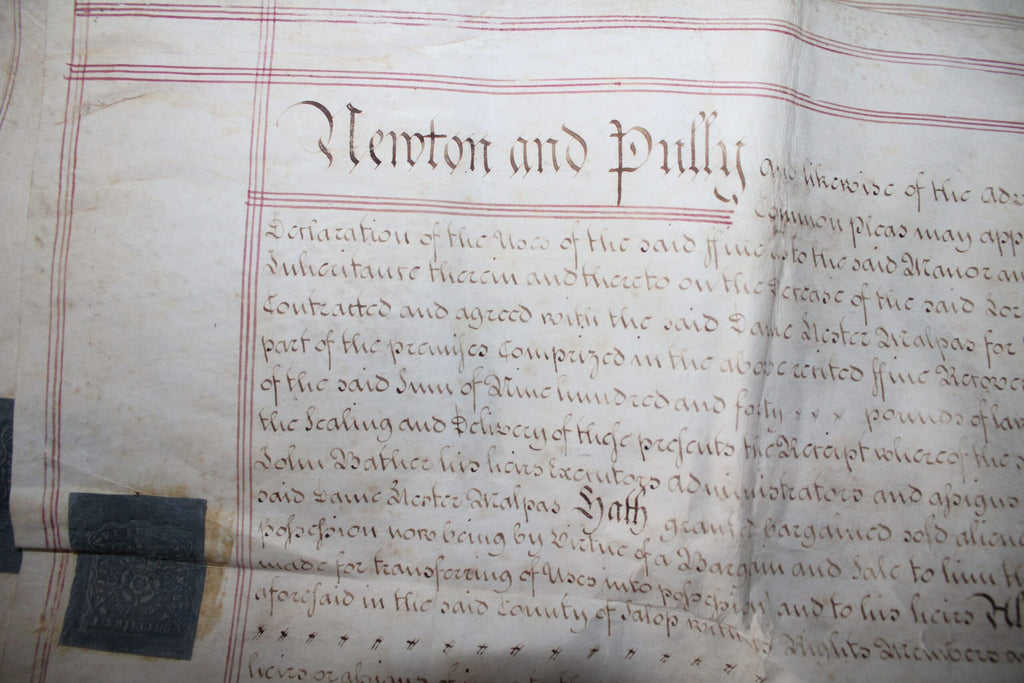 Newton and Pully And likewise of the
Common Pleas may app
Declaration of the Uses of the said ffine as to the said Manor an
Inheritance therein and thereto on the decease of the said
Contracted and agreed with the said Dame Hester Malpas for
part of the premises Comprized in the above recited ffine
of the said Sum of Nine hundred and forty * * * pounds of law
the Sealing and Delivery of these presents the Receipt whereof the s
John Bather his heirs Executors administrators and assigns
said Dame Hester Malpas Hath granted bargained sold aliene
possession now being by Virtue of a Bargain and Sale to him th
made for transferring of Uses into possession) and to his heirs All
aforesaid in the said County of Salop with its Rights Members a
* * * * * * * * * * * *
heirs or assigns